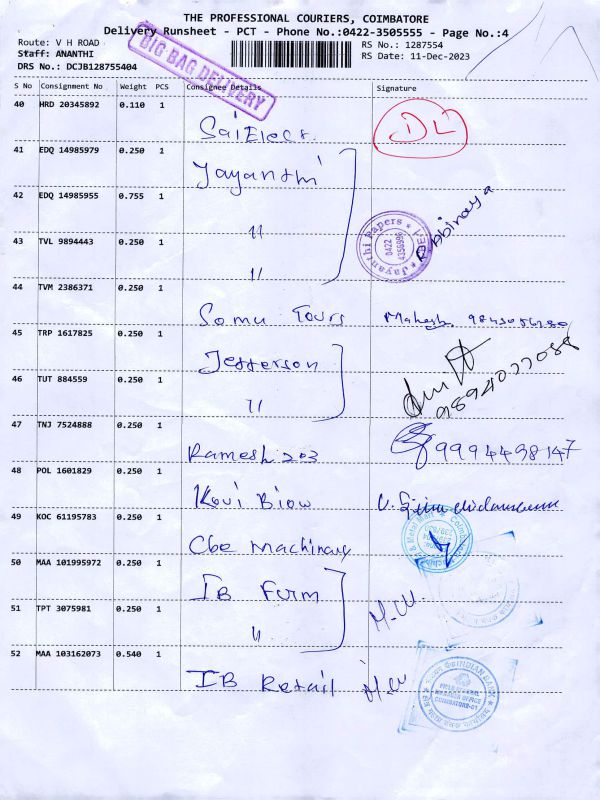 THE PROFESSIONAL COURIERS, COIMBATORE
Delivery Runsheet - PCT - Phone No.:0422-3505555 - Page No.:4
Route: V H ROAD
RS No.: 1287554
Staff: ANANTHI
RS Date: 11-Dec-2023
DRS No.: DCJB128755404
BIG BAG DELIVERY
S No Consignment No Weight PCS Consignee Details Signature
40 HRD 20345892 0.110 1
Sai Elecs. DL
41 EDQ 14985979 0.250 1
Jayanthi
42 EDQ 14985955 0.755 1
" Abinaya
Jayanthi Papers 0422 4356996
43 TVL 9894443 0.250 1
"
44 TVM 2386371 0.250 1
Somu Tours Mahesh
45 TRP 1617825 0.250 1
Jefferson
46 TUT 884559 0.250 1
" 9894077088
47 TNJ 7524888 0.250 1
Ramesh 203 9994498147
48 POL 1601829 0.250 1
Kovi Biow
49 KOC 61195783 0.250 1
Cbe Machinary
50 MAA 101995972 0.250 1
IB Furm
51 TPT 3075981 0.250 1
" M.W.
52 MAA 103162073 0.540 1
IB Retail M.W
INDIAN BANK
COIMBATORE-01